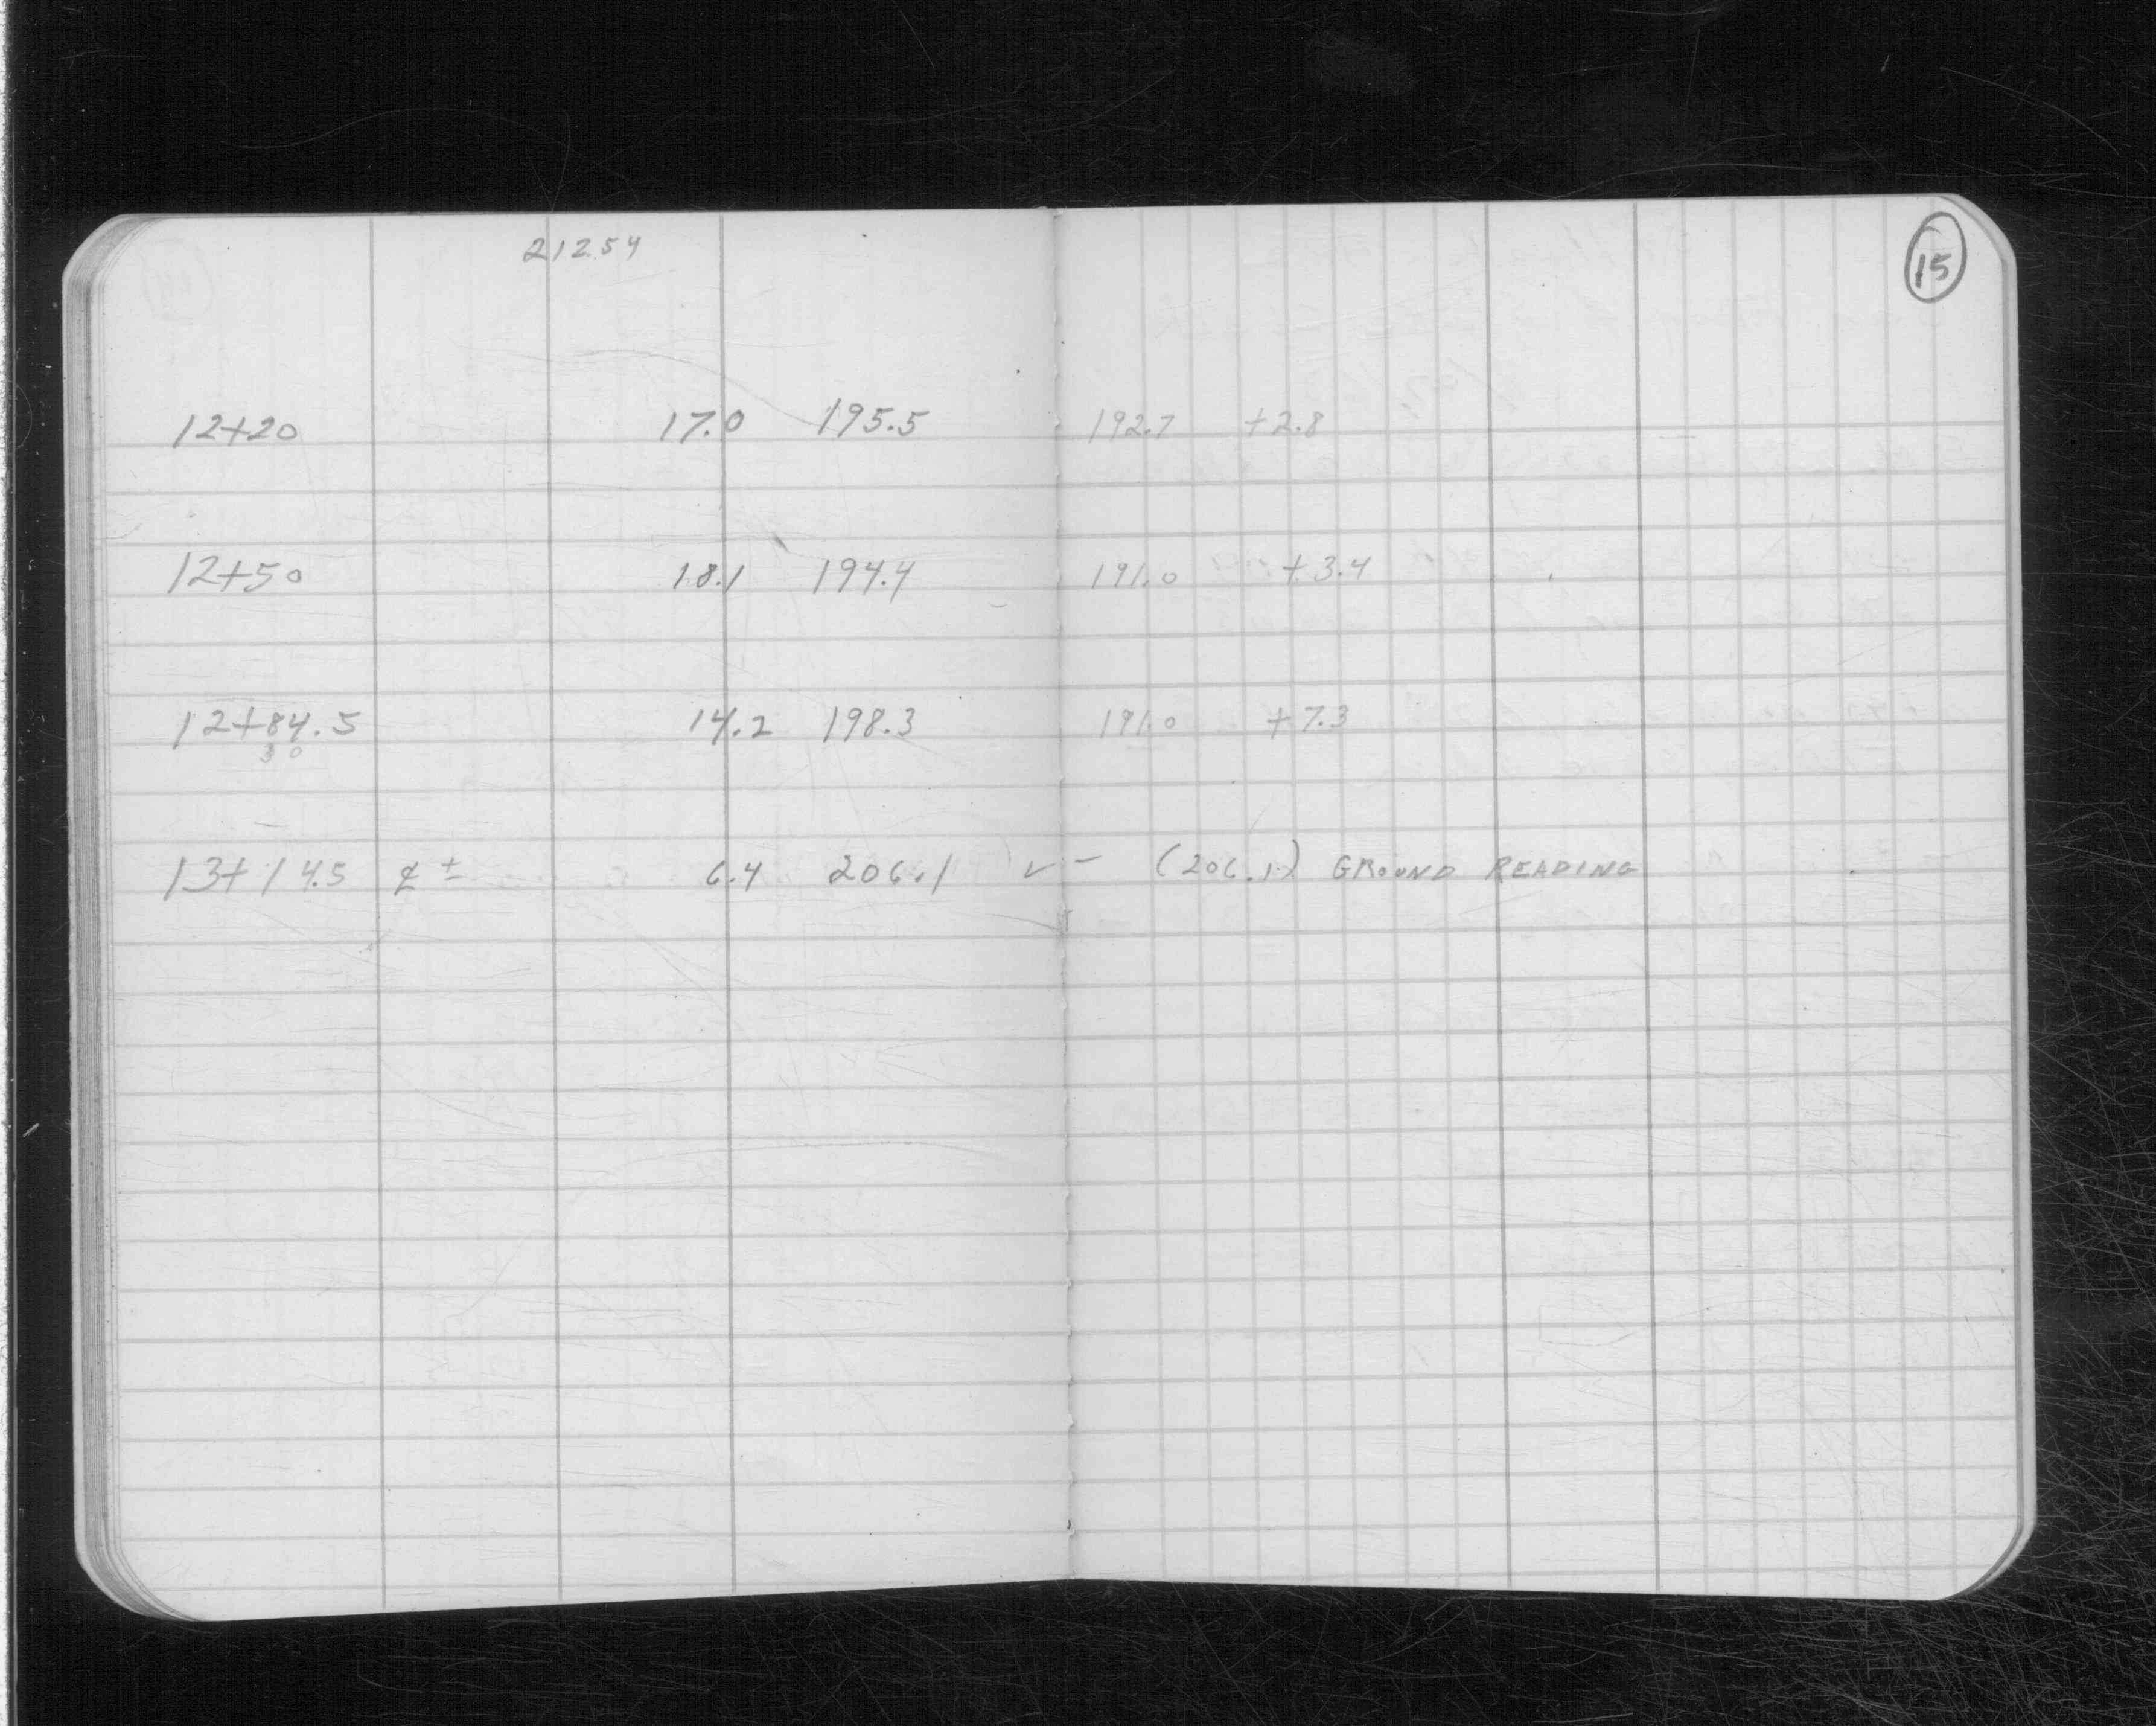 212.54
15
12+20 17.0 195.5 192.7 +2.8
12+50 18.1 194.4 191.0 +3.4
12+84.5 14.2 198.3 191.0 +7.3
30
13+14.5 ℄ ± 6.4 206.1 ✓ - (206.1) GROUND READING